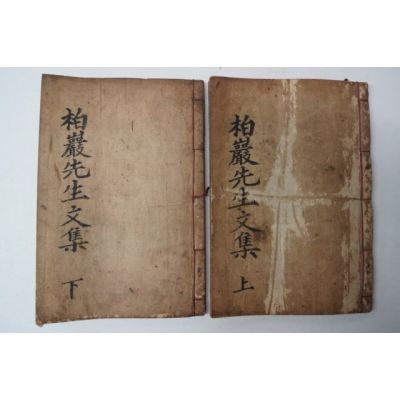 柏巖先生文集 下
柏巖先生文集 上